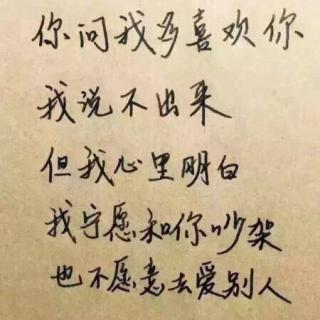 你问我多喜欢你
我说不出来
但我心里明白
我宁愿和你吵架
也不愿意去爱别人